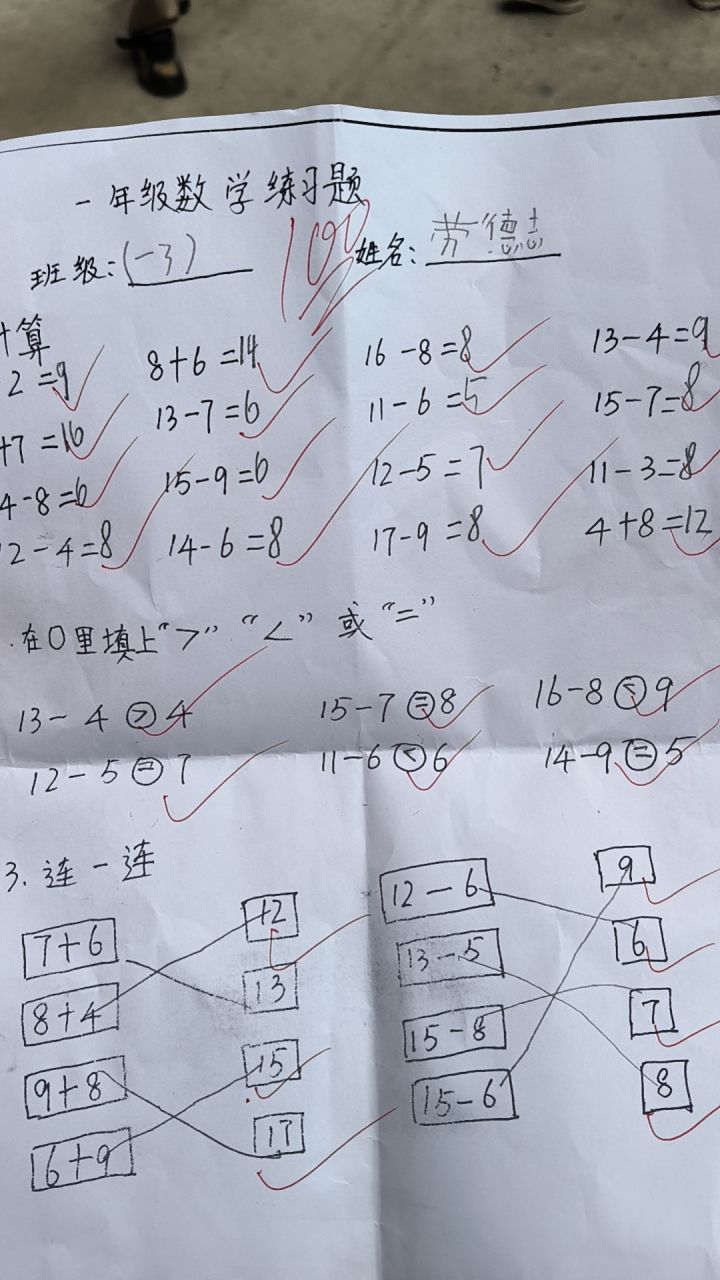 一年级数学练习题
班级:(一3) 100 姓名:劳德志
计算
2=9 8+6=14 16-8=8 13-4=9
+7=16 13-7=6 11-6=5 15-7=8
4-8=6 15-9=6 12-5=7 11-3=8
12-4=8 14-6=8 17-9=8 4+8=12
.在○里填上">" "<" 或 "="
13-4>4 15-7=8 16-8<9
12-5=7 11-6<6 14-9=5
3.连一连
7+6 12 12-6 9
8+4 13 13-5 6
9+8 15 15-8 7
6+9 17 15-6 8